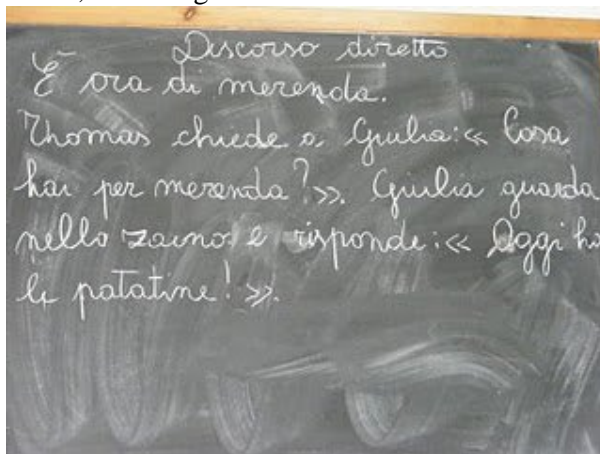 Discorso diretto
È ora di merenda.
Thomas chiede a Giulia: « Cosa
hai per merenda? ». Giulia guarda
nello zaino e risponde: « Oggi ho
le patatine! ».